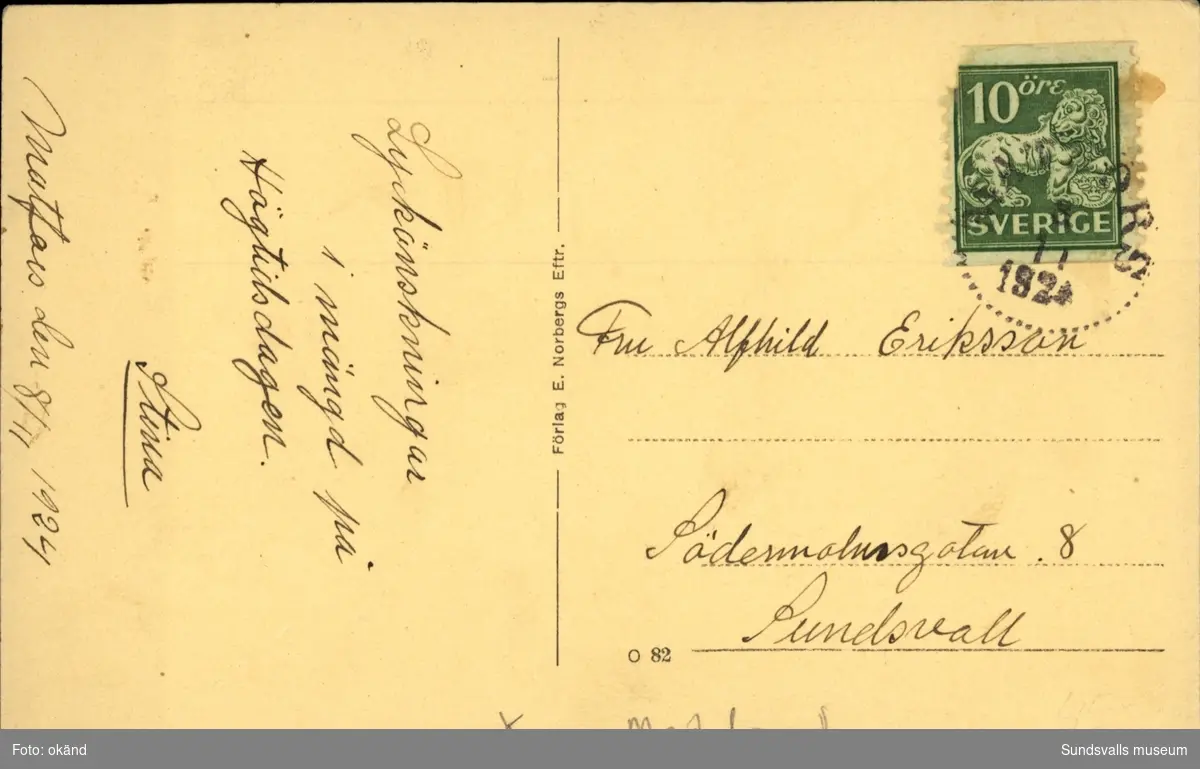 Matfors den 8/11 1924
Lyckönskningar
i mängd på
Högtidsdagen.
Stina
Förlag E. Norbergs Eftr.
10 öre
SVERIGE
ORS
11
1924
Fru Alfhild Eriksson
Södermalmsgatan. 8
Sundsvall
O 82
Foto: okänd
Sundsvalls museum